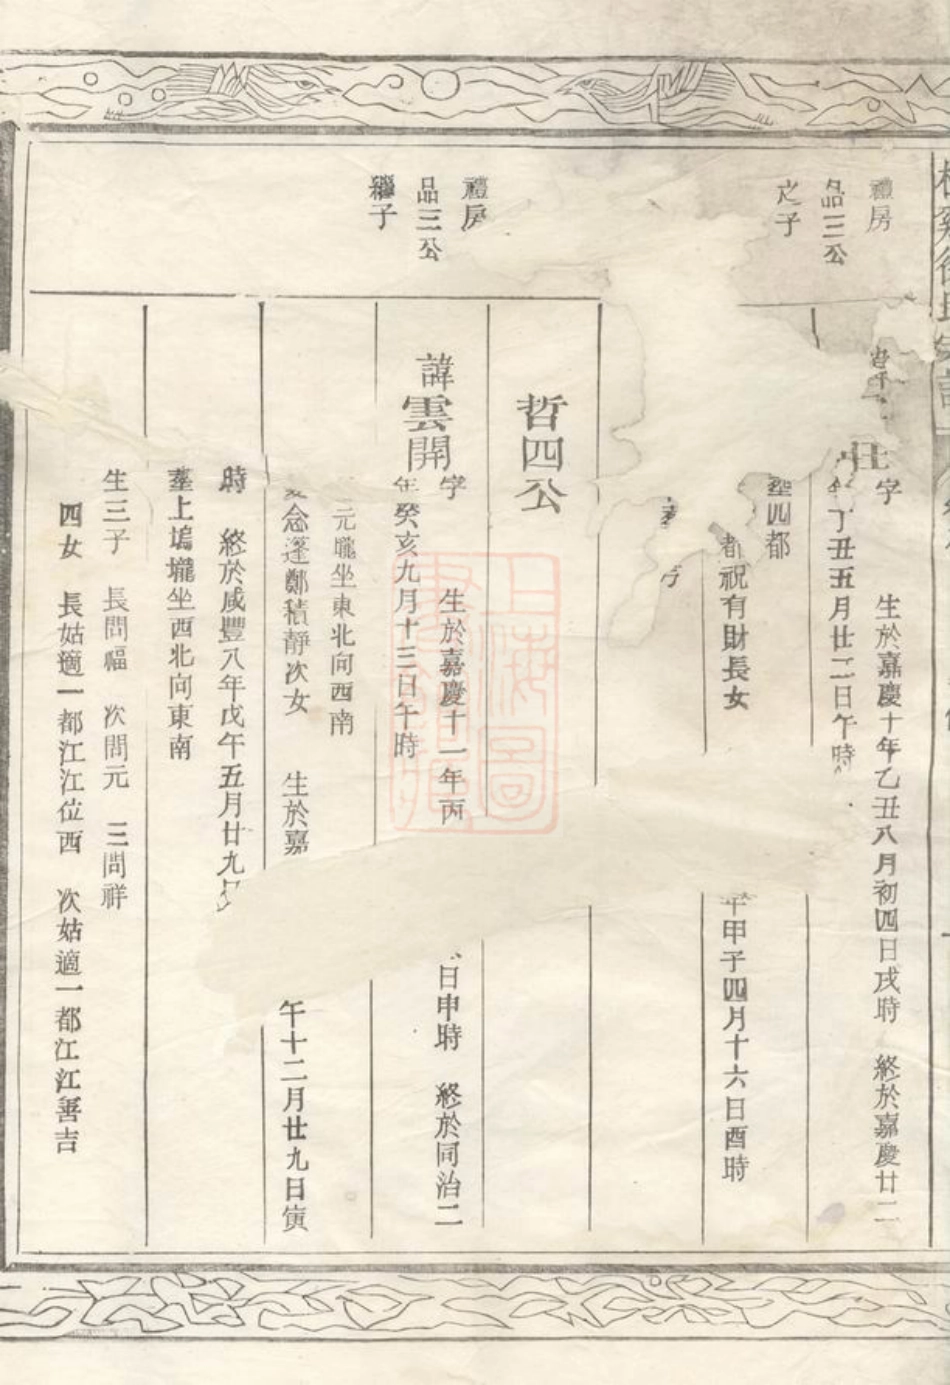 禮房
品三公
之子
字 生於嘉慶十年乙丑八月初四日戌時 終於嘉慶廿二
年丁丑五月廿二日午時
塟四都
都祝有財長女
年甲子四月十六日酉時
哲四公
禮房
品三公
繼子
諱雲開
字 生於嘉慶十一年丙
日申時 終於同治二
年癸亥九月十三日午時
元壠坐東北向西南
念蓬鄭積靜次女 生於嘉
午十二月廿九日寅
時 終於咸豐八年戊午五月廿九
塟上塢壠坐西北向東南
生三子 長問福 次問元 三問祥
四女 長姑適一都江江位西 次姑適一都江江善吉
上海圖
書館藏